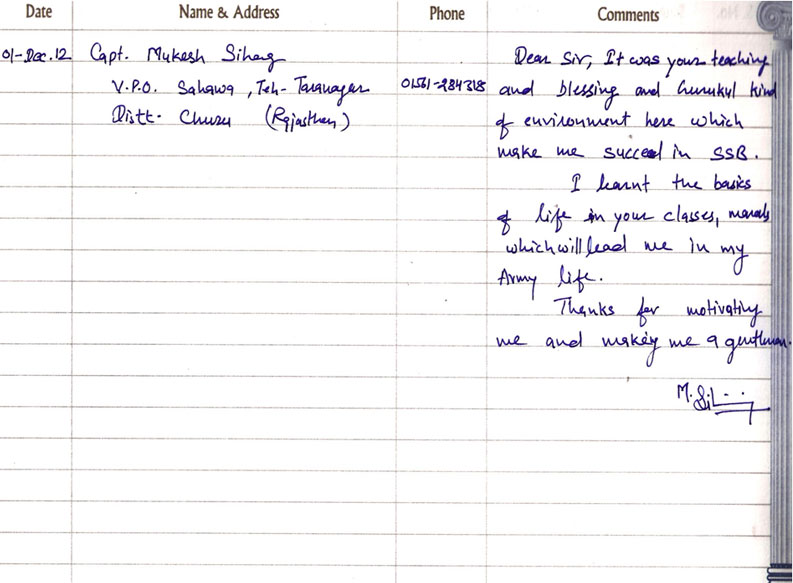 Date Name & Address Phone Comments
01-Dec.12 Capt. Mukesh Sihag
V.P.O. Sahawa, Teh- Taranagar 01561-284318
Distt- Churu (Rajasthan)
Dear Sir, It was your teaching
and blessing and Gurukul kind
of environment here which
make me succeed in SSB.
I learnt the basics
of life in your classes, morals
which will lead me in my
Army life.
Thanks for motivating
me and making me a gentleman.